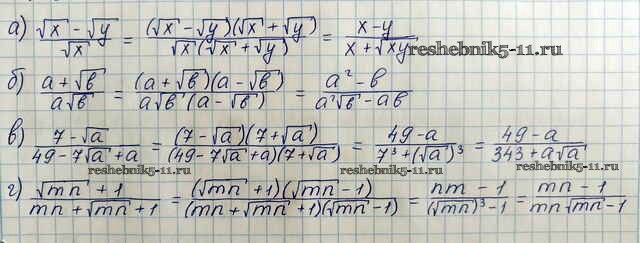 а) (√x − √y)/√x = ((√x − √y)(√x + √y))/(√x(√x + √y)) = (x − y)/(x + √xy)
reshebnik5-11.ru
б) (a + √b)/(a√b) = ((a + √b)(a − √b))/(a√b(a − √b)) = (a² − b)/(a²√b − ab)
в) (7 − √a)/(49 − 7√a + a) = ((7 − √a)(7 + √a))/((49 − 7√a + a)(7 + √a)) = (49 − a)/(7³ + (√a)³) = (49 − a)/(343 + a√a)
reshebnik5-11.ru reshebnik5-11.ru
г) (√mn + 1)/(mn + √mn + 1) = ((√mn + 1)(√mn − 1))/((mn + √mn + 1)(√mn − 1)) = (nm − 1)/((√mn)³ − 1) = (mn − 1)/(mn√mn − 1)